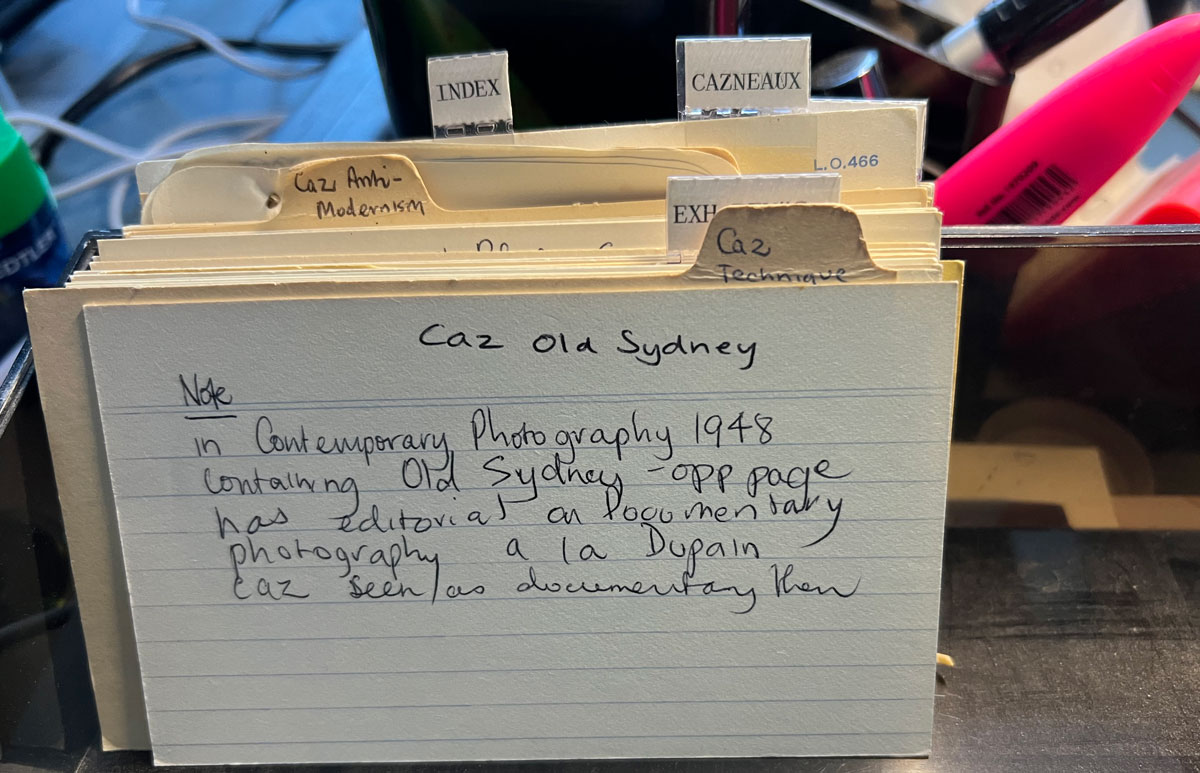 INDEX
CAZNEAUX
L.O.466
Caz Anti-
Modernism
EXH
Caz
Technique
Caz Old Sydney
Note
in Contemporary Photography 1948
containing Old Sydney - opp page
has editorial on Documentary
photography a la Dupain
Caz seen/as documentary then